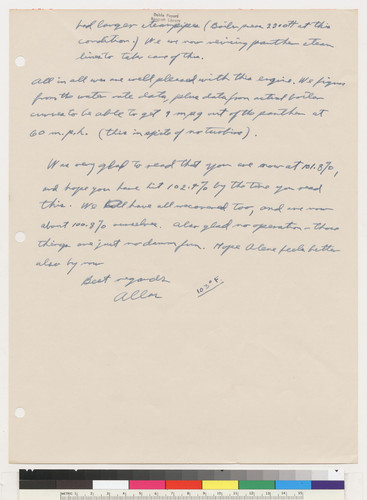 had larger steam pipes (Boiler press 330 at this
condition.) We are now revising panther steam
lines to take care of this.
All in all we are well pleased with this engine. We figure
from the water rate data, plus data from actual boiler
curves to be able to get 9 mpg out of the panther at
60 m.p.h. (this in spite of no turbine).
Was very glad to read that you are now at 101.8%,
and hope you have hit 102.4% by the time you read
this. We all have all recovered too, and are now
about 100.8% ourselves. Also glad no operation - those
things are just no damn fun. Hope Alene feels better
also by now
Best regards
Allan